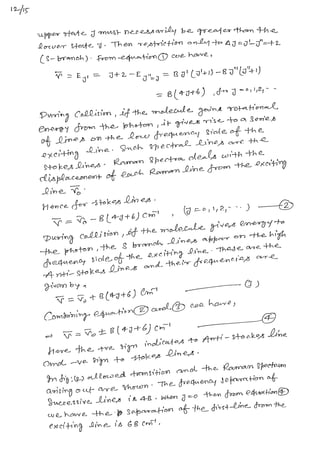 12/15
upper state J must necessarily be greater than the
lower state J. Then restriction only to ΔJ = J'-J''=+2
(S-branch). From equation ① we have,
ν̄ = EJ' = J+2 - EJ''=J = BJ'(J'+1) - BJ''(J''+1)
= B(4J+6), for J = 0,1,2,..
During Collision, if the molecule gains rotational
energy from the photon, it gives rise to a series
of lines on the low frequency side of the
exciting line. Such spectral lines are the
stokes lines. Raman spectra deals with the
displacement of each Raman line from the exciting
line ν̄0.
Hence for stokes lines.
ν̄ = ν̄0 - B(4J+6) cm⁻¹ , (J = 0,1,2,...) — ②
During Collision, if the molecule gives energy to
the photon, the S branch lines appear on the high
frequency side of the exciting line. These are the
Anti-stokes lines and their frequencies are
given by,
ν̄ = ν̄0 + B(4J+6) cm⁻¹ — ③
Combining equation ② and ③ we have,
⇒ ν̄ = ν̄0 ± B(4J+6) cm⁻¹ — ④
Here the +ve sign indicates to Anti-stockes line
and -ve sign to stokes lines.
In fig:(2) allowed transition and the Raman Spectrum
arising out are shown. The frequency separation of
Successive lines is 4B. When J=0 then from equation ④
we have the separation of the first-line from the
exciting line is 6B cm⁻¹.